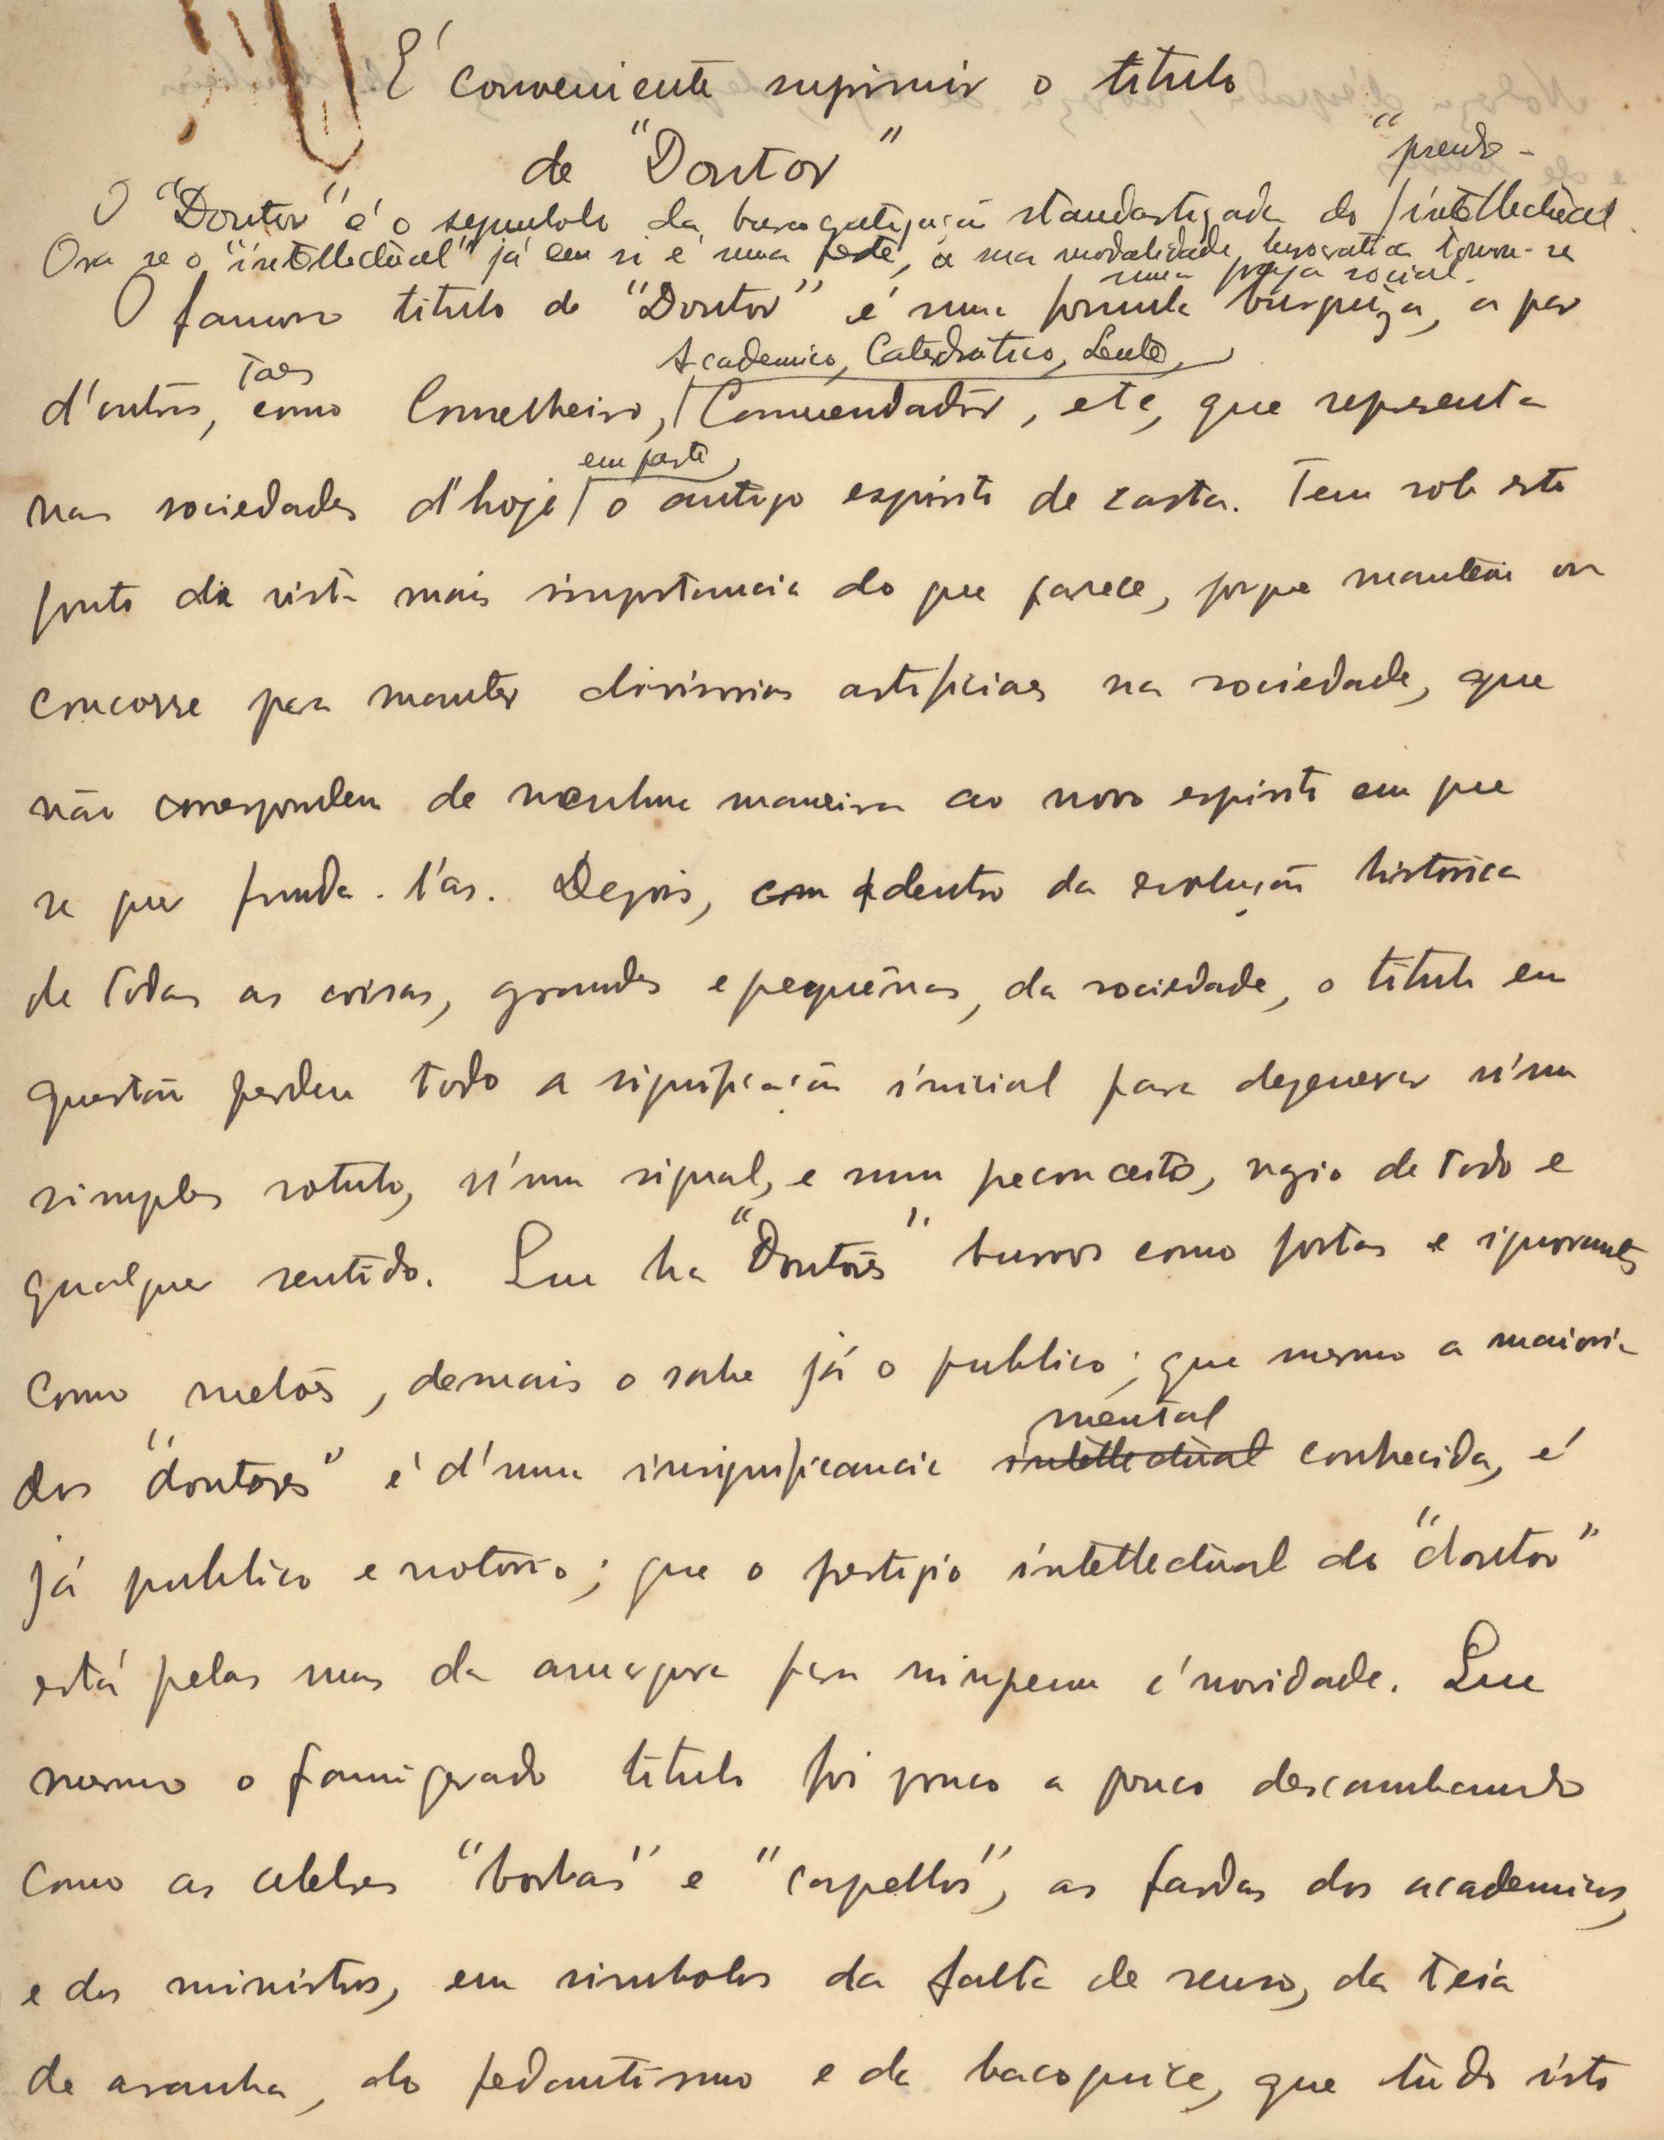 É conveniente suprimir o titulo
de "Doutor"
"pseudo-
O "Doutor" é o symbolo da burocratização standartizada do /intellectual
Ora se o "intellectual" já em si é uma peste, a sua modalidade burocratica torna-se
uma praga social.
O famoso titulo de "Doutor" é uma formula burgueza, a par
Academico, Catedrático, Lente,
taes
d'outros, como Conselheiro, Commendador, etc, que representa
em parte
nas sociedades d'hoje o antigo espirito de casta. Tem sob este
ponto de vista mais importancia do que parece, porque mantem ou
concorre para manter divisorias artificiaes na sociedade, que
não correspondem de nenhuma maneira ao novo espirito em que
se quer funda-l'as. Depois, com dentro da evolução historica
de todas as coisas, grandes e pequenas, da sociedade, o titulo em
questão perdeu toda a significação inicial para degenerar n'um
simples rotulo, n'um signal, e num preconceito, vazio de todo e
qualquer sentido. Que ha "Doutores" burros como portas e ignorantes
como melões, demais o sabe já o publico; que mesmo a maioria
mental
dos "doutores" é d'uma insignificancia intellectual conhecida, é
já publico e notorio; que o prestigio intellectual do "doutor"
está pelas ruas da amargura para ninguem é novidade. Que
mesmo o famigerado titulo foi pouco a pouco descambando
como as celebres "borlas" e "capellos", as fardas dos academicos,
e dos ministros, em simbolos da falta de senso, da teia
de aranha, do pedantismo e da bacoquice, que tudo isto